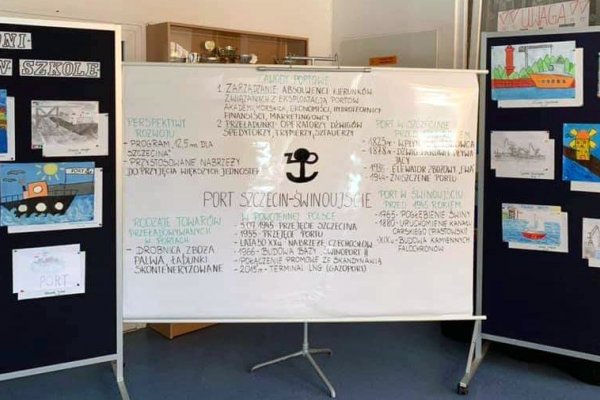 DNI
W SZKOLE
UWAGA
ZAWODY PORTOWE
1 ZARZĄDZANIE: ABSOLWENCI KIERUNKÓW
ZWIĄZANYCH Z EKSPLOATACJĄ PORTÓW
FINANSIŚCI, MARKETINGOWCY
2 PRZEŁADUNKI: OPERATORZY DŹWIGÓW
SPEDYTORZY, TRYMERZY, SZTAUERZY
PERSPEKTYWY
ROZWOJU
- PROGRAM „12,5 m DLA
SZCZECINA"
- PRZYSTOSOWANIE NABRZEŻY
DO PRZYJĘCIA WIĘKSZYCH JEDNOSTEK
PORT W SZCZECINIE
1945 ROKIEM
1935 ELEWATOR ZBOŻOWY „EWA
1944 - ZNISZCZENIE PORTU
PORT SZCZECIN-ŚWINOUJŚCIE
RODZAJE TOWARÓW
PRZEŁADOWYWANYCH
W PORTACH
- DROBNICA, ZBOŻA,
PALIWA, ŁADUNKI
SKONTENERYZOWANE
W POWOJENNEJ POLSCE
- 5.07.1945 PRZEJĘCIE SZCZECINA
- 1955 - PRZEJĘCIE PORTU
- LATA 50 XXw NABRZEŻE CZECHOSŁOW.
- 1966 - BUDOWA BAZY „ŚWINOPORT II
- POŁĄCZENIE PROMOWE ZE SKANDYNAWIĄ
- 2015 - TERMINAL LNG (GAZOPORT)
PORT W ŚWINOUJŚCIU
PRZED 1945 ROKIEM
- 1765 - POGŁĘBIENIE ŚWINY
- 1880 - URUCHOMIENIE KANAŁU
CARSKIEGO (PIASTOWSKI)
- XIX w - BUDOWA KAMIENNYCH
FALOCHRONÓW
PORT